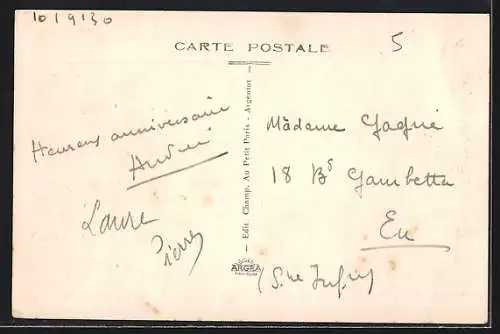 10/9/30
CARTE POSTALE
5
Heureux anniversaire
André
Laure
Pierre
Edit. Champ, Au Petit Paris - Argentat
ARGRA
Mâdame Gagné
18 Bs Gambetta
Eu
(S. re Infre)